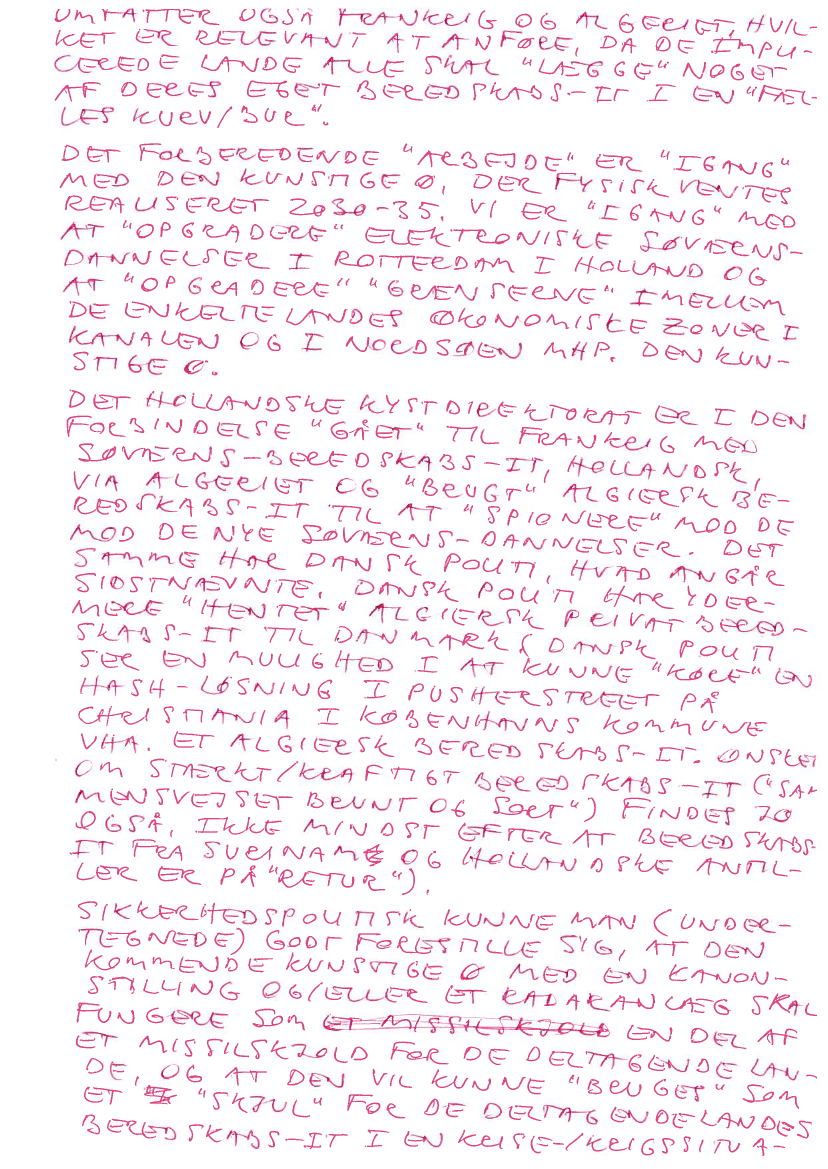 OMFATTER OGSÅ FRANKRIG OG ALGERIET, HVIL-
KET ER RELEVANT AT ANFØRE, DA DE IMPLI-
CEREDE LANDE ALLE SKAL "LÆGGE" NOGET
AF DERES EGET BEREDSKABS-IT I EN "FÆL-
LES KURV/BUR".
DET FORBEREDENDE "ARBEJDE" ER "IGANG"
MED DEN KUNSTIGE Ø, DER FYSISK VENTES
REALISERET 2030-35. VI ER "IGANG" MED
AT "OPGRADERE" ELEKTRONISKE SØVÆRNS-
DANNELSER I ROTTERDAM I HOLLAND OG
AT "OPGRADERE" "GRÆNSERNE" IMELLEM
DE ENKELTE LANDES ØKONOMISKE ZONER I
KANALEN OG I NORDSØEN MHP. DEN KUN-
STIGE Ø.
DET HOLLANDSKE KYSTDIREKTORAT ER I DEN
FORBINDELSE "GÅET" TIL FRANKRIG MED
SØVÆRNS-BEREDSKABS-IT, HOLLANDSK,
VIA ALGERIET OG "BRUGT" ALGIERSK BE-
REDSKABS-IT TIL AT "SPIONERE" MOD DE
MOD DE NYE SØVÆRNS-DANNELSER. DET
SAMME HAR DANSK POLITI, HVAD ANGÅR
SIDSTNÆVNTE. DANSK POLITI HAR YDER-
MERE "HENTET" ALGIERSK PRIVAT BERED-
SKABS-IT TIL DANMARK (DANSK POLITI
SER EN MULIGHED I AT KUNNE "KØRE" EN
HASH-LØSNING I PUSHERSTREET PÅ
CHRISTIANIA I KØBENHAVNS KOMMUNE
VHA. ET ALGIERSK BEREDSKABS-IT. ØNSKET
OM STÆRKT/KRAFTIGT BEREDSKABS-IT ("SAM
MENSVEJSET BRUNT OG SORT") FINDES JO
OGSÅ, IKKE MINDST EFTER AT BEREDSKABS-
IT FRA SURINAM OG HOLLANDSKE ANTIL-
LER ER PÅ "RETUR").
SIKKERHEDSPOLITISK KUNNE MAN (UNDER-
TEGNEDE) GODT FORESTILLE SIG, AT DEN
KOMMENDE KUNSTIGE Ø MED EN KANON-
STILLING OG/ELLER ET RADARANLÆG SKAL
FUNGERE SOM ET MISSILSKJOLD EN DEL AF
ET MISSILSKJOLD FOR DE DELTAGENDE LAN-
DE, OG AT DEN VIL KUNNE "BRUGES" SOM
ET "SKJUL" FOR DE DELTAGENDE LANDES
BEREDSKABS-IT I EN KRISE-/KRIGSSITUA-